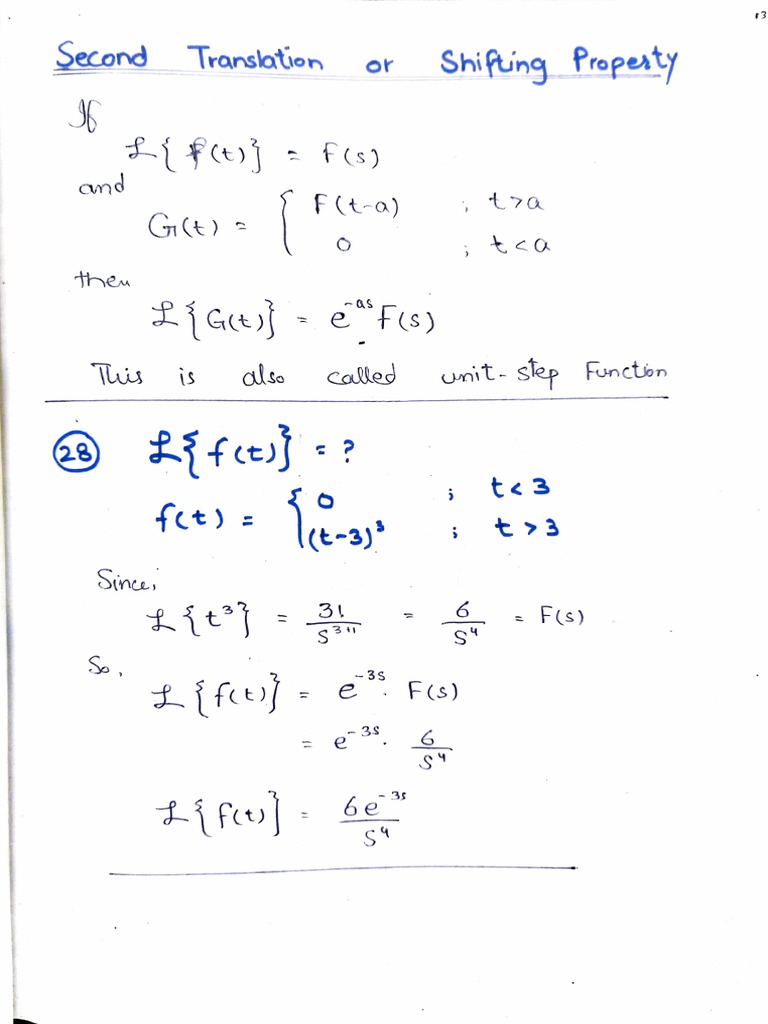 13
Second Translation or Shifting Property
If
ℒ{f(t)} = F(s)
and
G(t) = { F(t-a) ; t>a
0 ; t<a
then
ℒ{G(t)} = e^{-as} F(s)
This is also called unit-step Function
28 ℒ{f(t)} = ?
f(t) = { 0 ; t<3
(t-3)³ ; t>3
Since,
ℒ{t³} = 3!/s^{3+1} = 6/s⁴ = F(s)
So,
ℒ{f(t)} = e^{-3s}. F(s)
= e^{-3s}. 6/s⁴
ℒ{f(t)} = 6e^{-3s}/s⁴